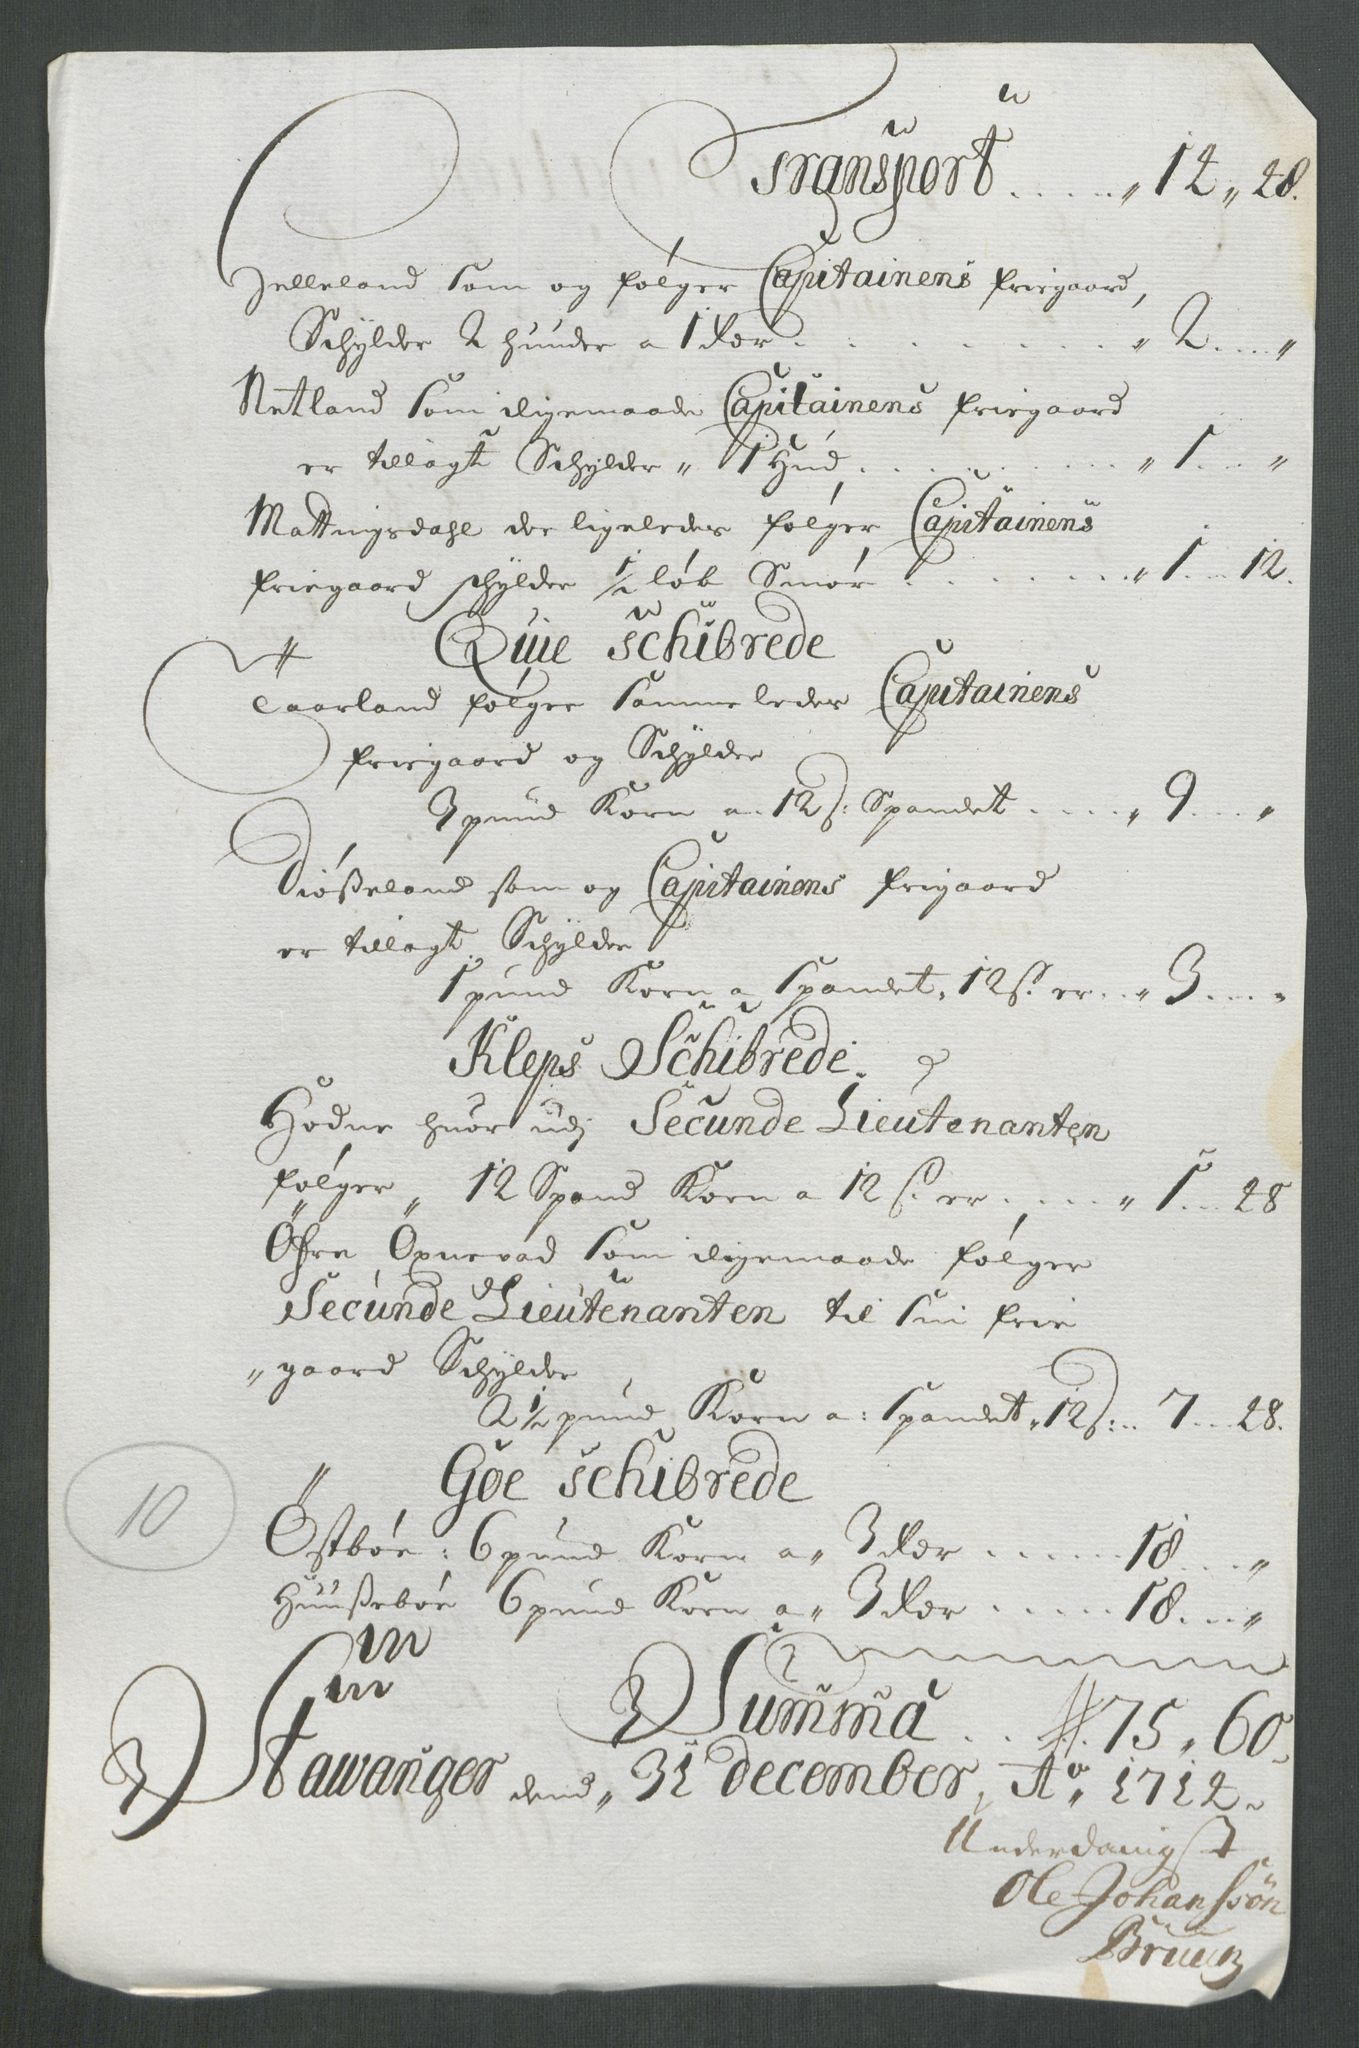 Transport . . . . . „ 12 „ 28.
Helleland som og følger Capitainens friegaard,
Schylder 2 huuder a 1 dlr . . . . . . . . „ 2 . . . „
Netland som iligemaade Capitainens friegaard
er tillagt Schylder „ 1 Hud . . . . . . . . „ 1 . . . „
Mattingsdahl der ligeledes følger Capitainens
friegaard schylder 1/2 løb Smør . . . . . . . . „ 1 . . . 12.
Quie Schibrede
Taarland følger sammeledes Capitainens
friegaard og Schylder
3 pund Korn a 12 s: Spandet . . . . „ 9 . . . „
Diøßeland som og Capitainens frigaard
er tillagt Schylder
1 pund Korn a Spandet, 12 s. er . . „ 3 . . . „
Kleps Schibrede.
Hodne huor udj Secunde Lieutenanten
følger „ 12 Spand Korn a 12 s. er . . . . „ 1 . . . 28
Øfre Oxnevad som iligemaade følger
Secunde Lieutenanten til sin frie
„ gaard Schylder
2 1/2 pund Korn a: Spandet „ 12 s: . . 7 . . . 28.
Goe Schibrede
10
Østbøe: 6 pund Korn a „ 3 dlr . . . . . . 18 . . . „
Huußebøe 6 pund Korn a „ 3 dlr . . . . . 18 . . . „
Summa . . . 75 „ 60.
Stawanger dend „ 31 december, Ao. 1712.
Underdanigst
Ole Johanssøn
Bruun